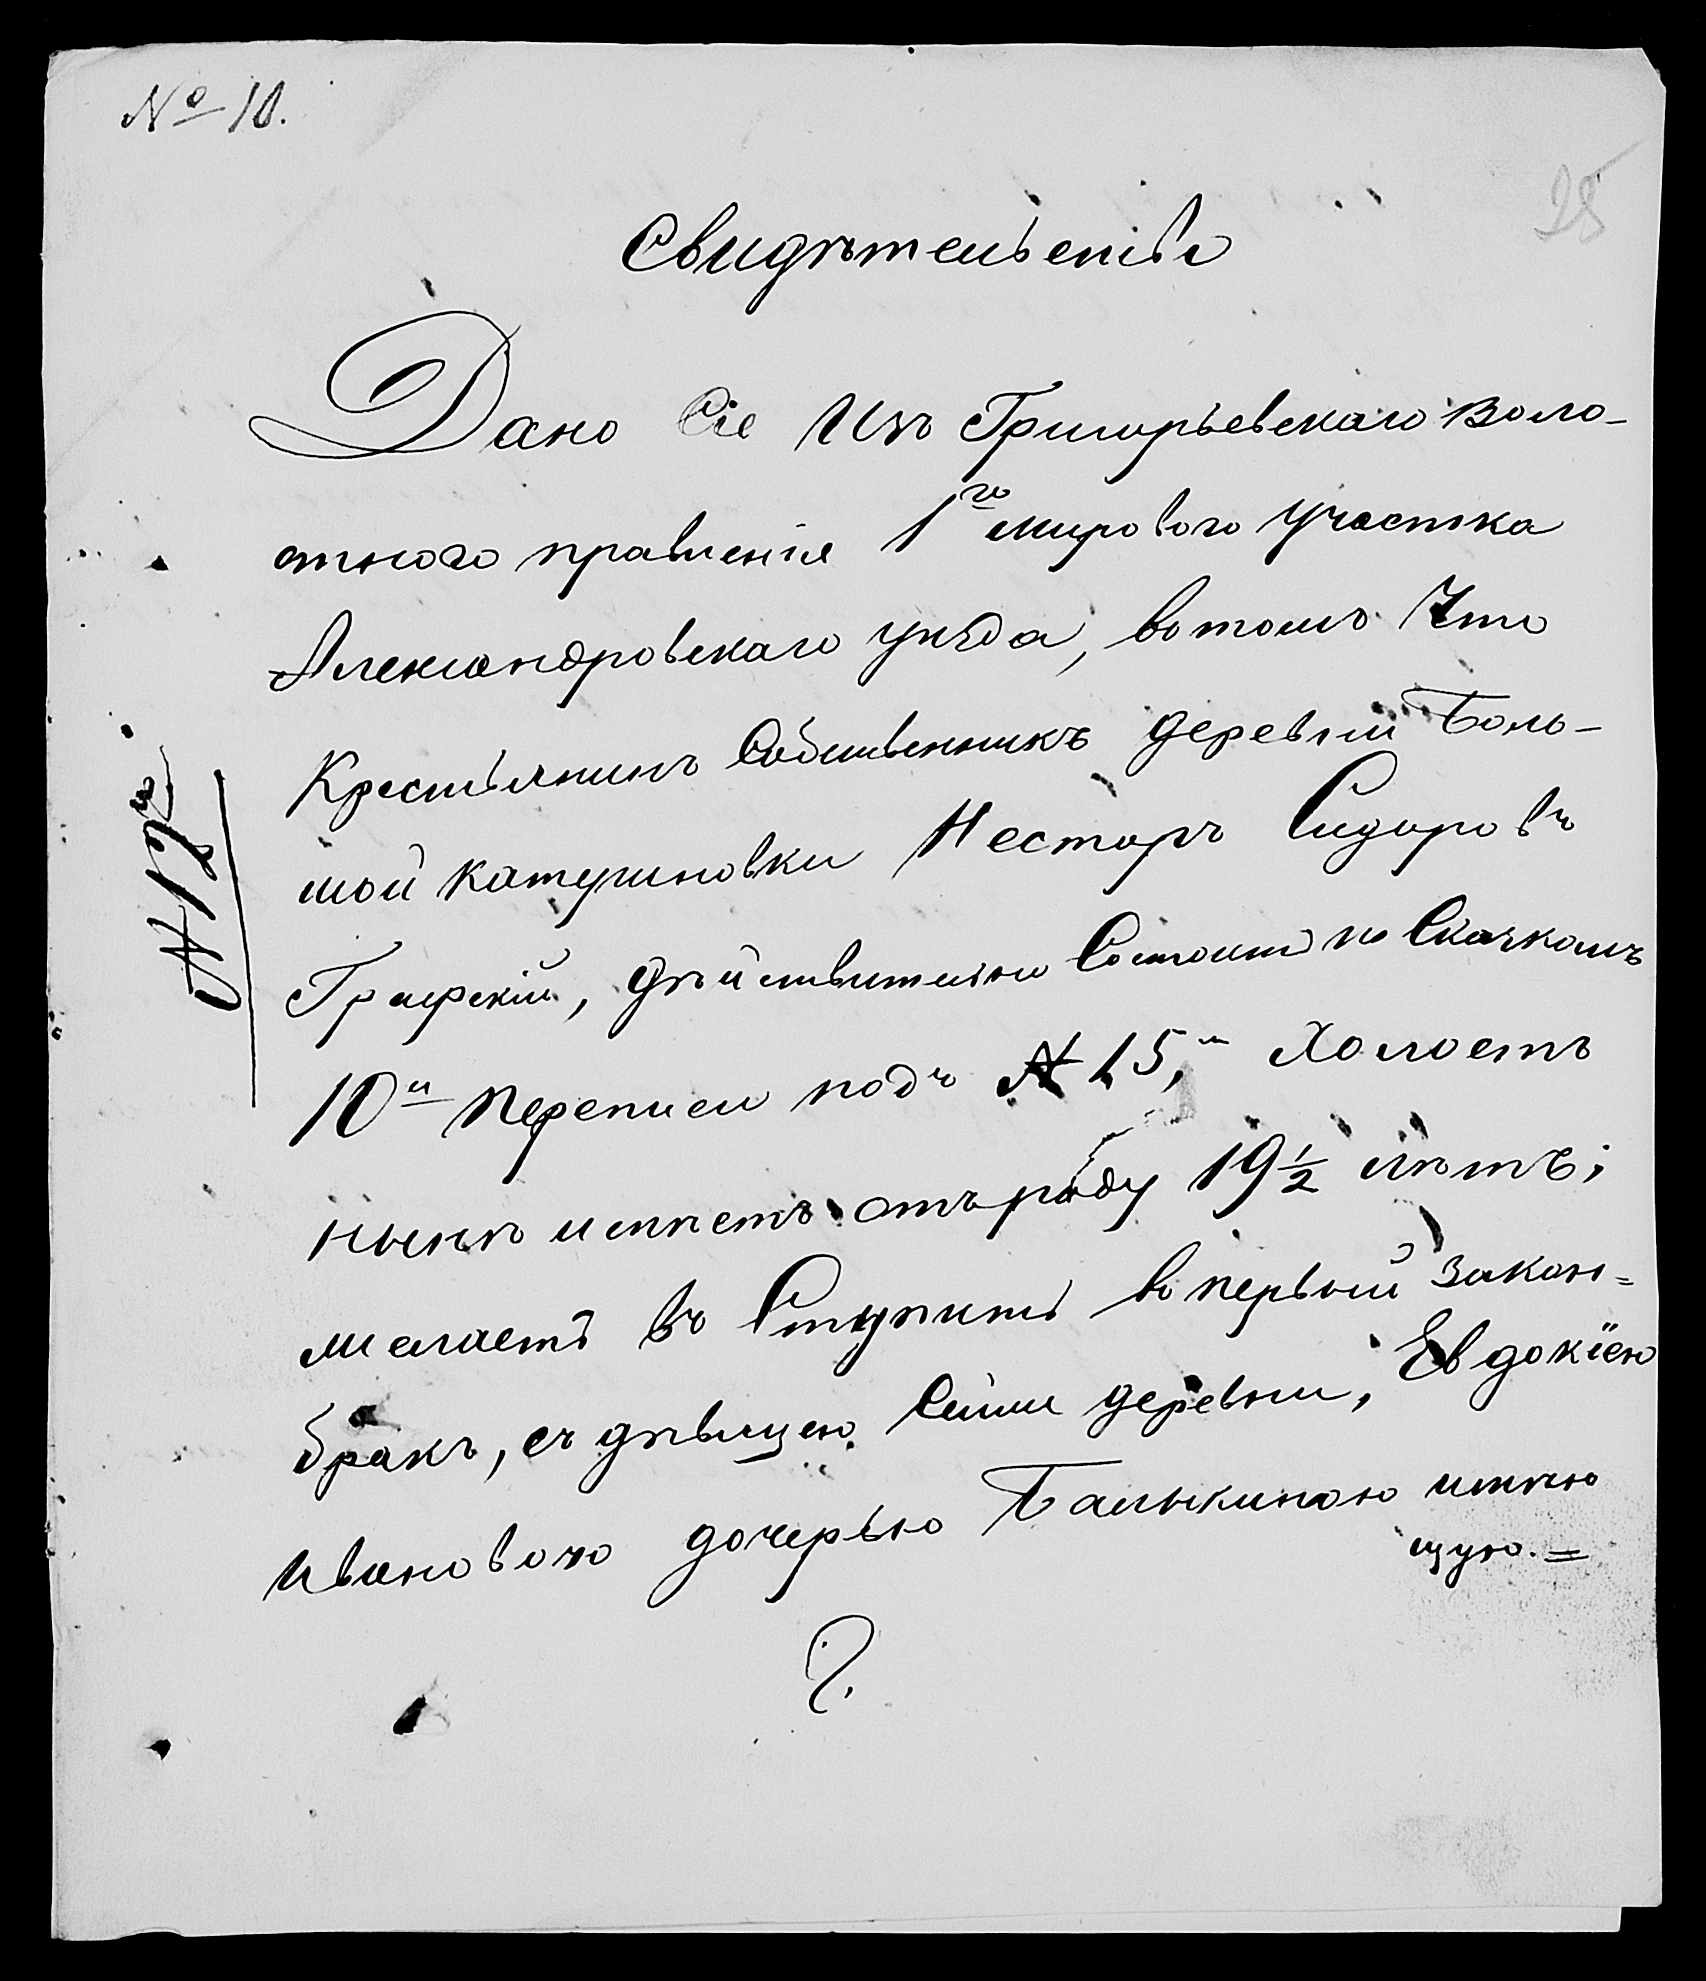 № 10.
28
Свидѣтельство
Дано Сіе Изъ Григорьевскаго Воло-
стного правленія 1го мироваго участка
Александровскаго уѣзда, вотомъ Что
Крестьянинъ Собственникъ деревни Боль-
шой Катериновки Несторъ Сидоровъ
Графскій, дѣйствительно Состоитъ по Сказкамъ
10й переписи подъ № 15, Холостъ
ныне имѣетъ отъ роду 19½ лѣтъ;
желаетъ въ Ступить вопервый закон=
бракъ, съ дѣвицею Сейже деревни, Евдокіею
Ивановою дочерью Балыкиною имѣю
щую. =
№ 12й